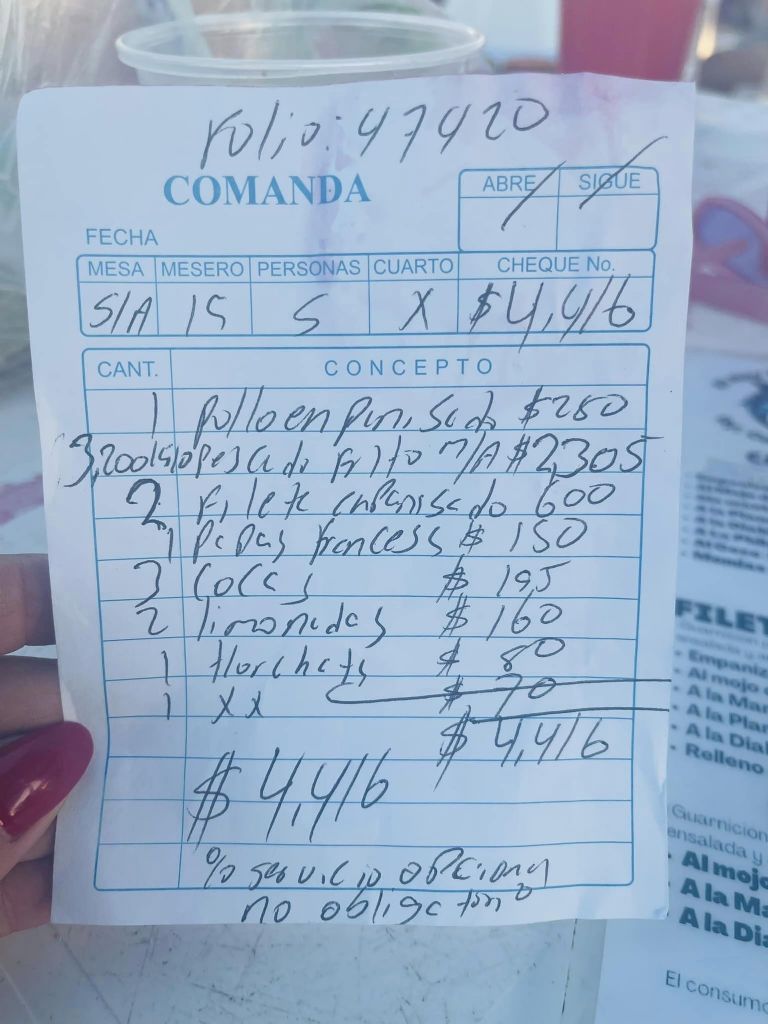 Folio: 47420
COMANDA
ABRE SIGUE
FECHA
MESA MESERO PERSONAS CUARTO CHEQUE No.
S/A 15 5 X $4,416
CANT. CONCEPTO
1 pollo enpanisado $280
pescado frito M/A $2,305
2 Filete enpanisado 600
1 papas francess $ 150
3 Cocas $ 195
2 limonadas $ 160
1 Horchata $ 80
1 XX $ 70
$ 4,416
$ 4,416
% servicio opcional
no obligaton°
FILET
- Empaniz
- Al mojo
- A la Mar
- A la Plan
- A la Dial
- Relleno
Guarnicion
ensalada y
- Al mojo
- A la Ma
- A la Dia
El consumo